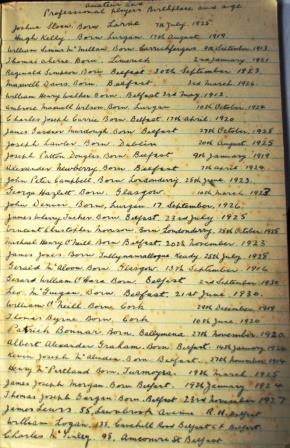 Amateur and
Professional Players Birthplace and age
Joshua Sloan. Born Larne 7th July 1925
Hugh Kelly Born Lurgan 17th August 1919.
William Ennis McMillan Born Carrickfergus 9th September 1913.
Thomas Born. Limerick 2nd January 1921
Reginald Simpson Born Belfast 30th September 1923.
Maxwell Davis Born Belfast. 3rd March 1926.
William Henry Born Belfast 3rd May 1921
Ambrose Maxwell Wilson Born Lurgan 10th October 1924
Charles Joseph Currie Born Belfast 17th April 1920
James Gardner Murdough Born Belfast 27th October 1925
Joseph Lawlor Born Dublin 20th August 1925
Joseph Patton Douglas Born Belfast 9th January 1919
Alexander Newberry Born Belfast 7th April 1924
John Peter Campbell Born Londonderry 25th June 1923.
George Hazlett Born Glasgow. 10th March 1923
John Denver Born, Lurgan 17 September 1926.
James Henry Tucker Born Belfast 23rd July 1925
Vincent Christopher Born, Londonderry, 25th October 1925
Michael Henry O'Neill Born Belfast. 30th November 1923
James Jones Born Tullynamallogue Keady. 25th July 1925
Gerald McAloon Born Glasgow 13th September 1916
Gerard William O'Hara Born Belfast 2nd September 1930
Leo McGuigan Born Belfast. 21st June 1930.
William O'Neill Born Cork 29th December 1919
Thomas Byrne Born Cork 10th June 1920
Patrick Bonnar Born Ballymena 27th November 1920
Albert Alexander Graham. Born Belfast 14th January 1924
Kevin Joseph McAlinden Born Belfast. 27th November 1924
Henry McPartland Born 19th March 1925
James Joseph Morgan Born Belfast 19th January 1924
Thomas Joseph Gargan Born Belfast 23rd November 1927
James Lewis 55, Lawnbrook Avenue Belfast
William Logan 135 Crumlin Road Belfast
Charles 98. Antcomrie St Belfast